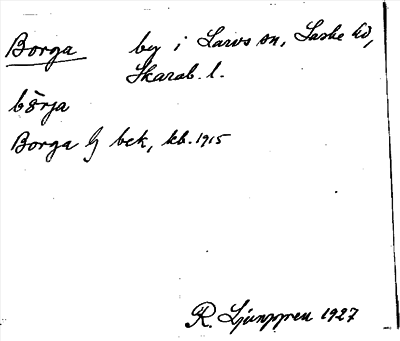 Borga by i Larvs sn, Laske hd,
Skarab. l.
bårja
Borga by bek, kb. 1915
R. Ljunggren 1927